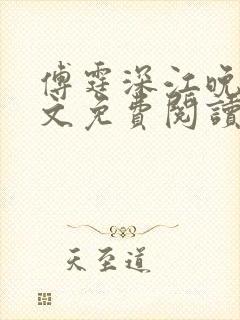 傅霆深江晚
文免費閱讀
天至道